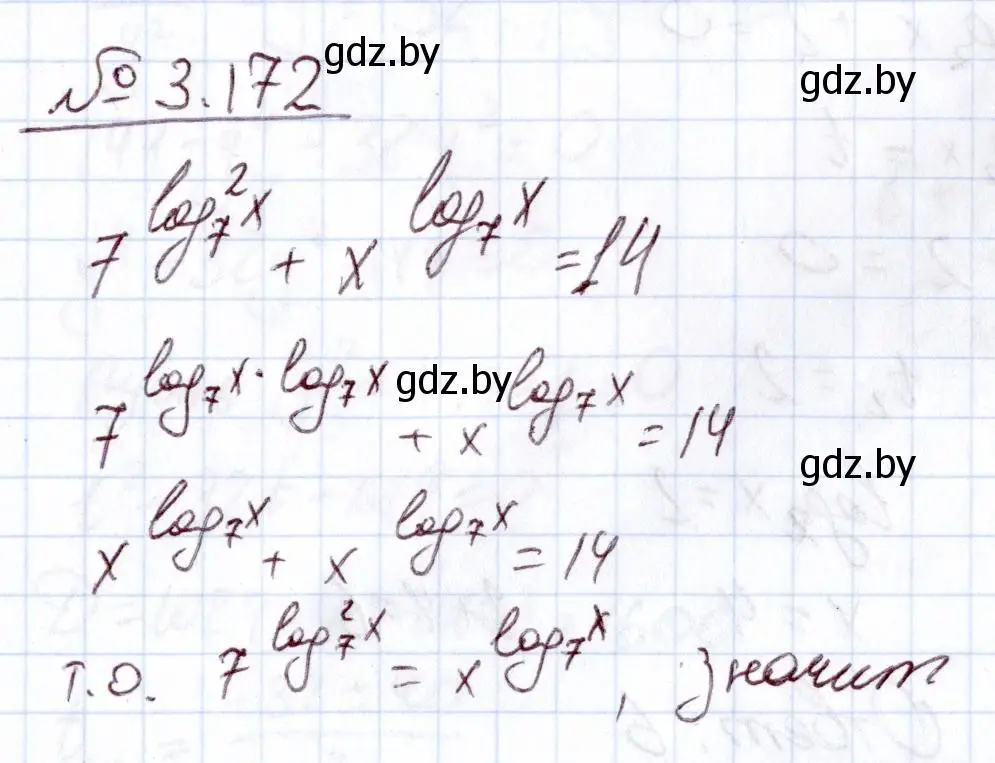 № 3.172 gdz.by gdz.by
7^{log_7^2 x} + x^{log_7 x} = 14
7^{log_7 x · log_7 x} + x^{log_7 x} = 14 gdz.by
gdz.by
x^{log_7 x} + x^{log_7 x} = 14
т.о. 7^{log_7^2 x} = x^{log_7 x}, значит